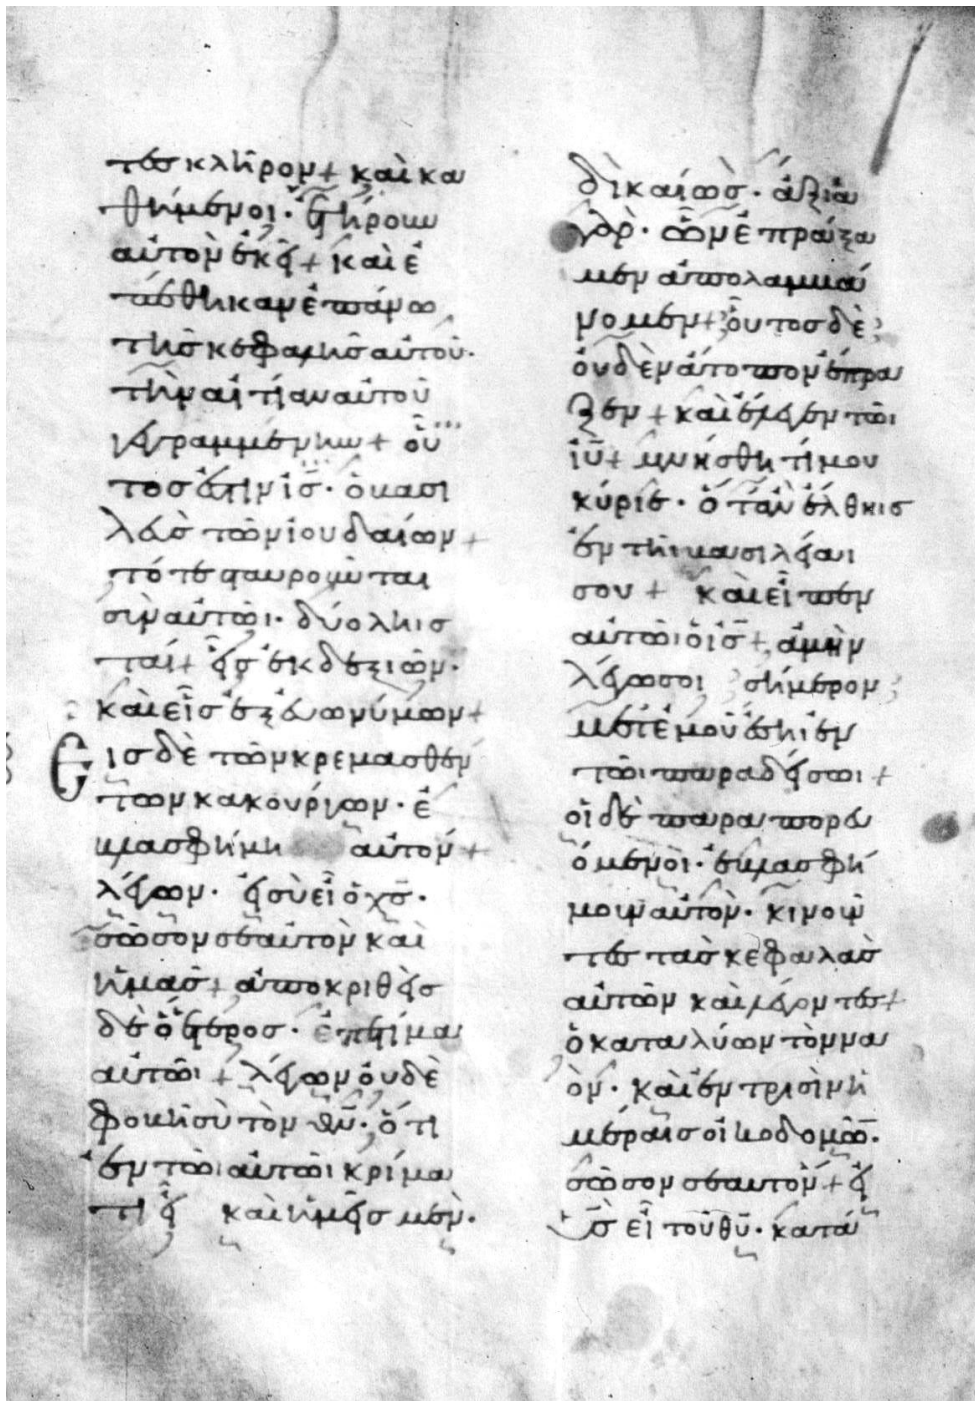 τες κλῆρον + καὶ κα
θήμενοι · ἐτήρουν
αὐτὸν ἐκεῖ + καὶ ἐ
πέθηκαν ἐπάνω
τῆς κεφαλῆς αὐτοῦ ·
τὴν αἰτίαν αὐτοῦ
γεγραμμένην + οὗ
τος ἐστιν ις · ὁ βασι
λεὺς τῶν ἰουδαίων +
τότε σταυροῦνται
σὺν αὐτῶι · δύο λῃσ
ταί + εἷς ἐκ δεξιῶν ·
καὶ εἷς ἐξ εὐωνύμων +
Εἷς δὲ τῶν κρεμασθέν
των κακούργων · ἐ
βλασφήμει αὐτόν +
λέγων · εἰ σὺ εἶ ὁ χς ·
σῶσον σεαυτὸν καὶ
ἡμᾶς + ἀποκριθεὶς
δὲ ὁ ἕτερος · ἐπετίμα
αὐτῶι + λέγων οὐδὲ
φοβῆ σὺ τὸν θν · ὅτι
ἐν τῶι αὐτῶι κρίμα
τι εἶ καὶ ἡμεῖς μὲν ·
δικαίως · ἄξια
γὰρ · ὧν ἐπράξα
μεν ἀπολαμβά
νομεν + οὗτος δὲ
οὐδὲν ἄτοπον ἔπρα
ξεν + καὶ ἔλεγεν τῶι
ιυ + μνήσθητί μου
κύριε · ὅταν ἔλθηις
ἐν τῆι βασιλείαι
σου + καὶ εἶπεν
αὐτῶι ὁ ις + ἀμὴν
λέγω σοι σήμερον
μετ ἐμοῦ ἔσηι ἐν
τῶι παραδείσωι +
οἱ δὲ παραπορευ
όμενοι · ἐβλασφή
μουν αὐτὸν · κινοῦν
τες τὰς κεφαλὰς
αὐτῶν καὶ λέγοντες +
ὁ καταλύων τὸν να
ὸν · καὶ ἐν τρισὶν ἡ
μέραις οἰκοδομῶν ·
σῶσον σεαυτόν + εἰ
υς εἶ τοῦ θυ · κατά